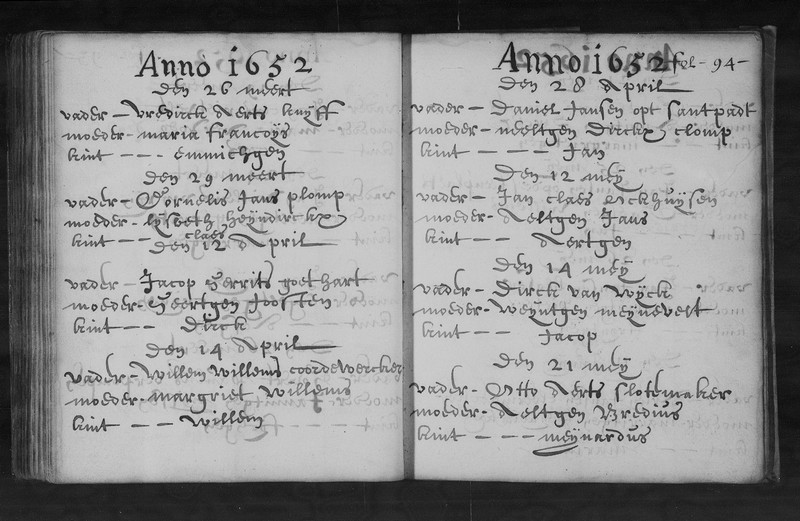 Anno 1652
den 26 meert
vader - Vredirck Aerts kuyff
moeder - maria francoys
kint - - - emmichgen
den 29 meert
vader - Cornelis Jans plomp
moeder - lysbeth heyndirckx
kint - - claes
den 12 April
vader - Jacop Gerrits goethart
moeder - Geertgen Joosten
kint - - Dirck
den 14 April
vader - Willem Willems coordewercker
moeder - margriet Willems
kint - - Willem
Anno 1652 fol - 94 -
den 28 April
vader - Daniel Jansen opt santpadt
moeder - neeltgen Dirckx clomp
kint - - - Jan
den 12 mey
vader - Jan claes Ockhuysen
moeder - Aeltgen Jans
kint - - Aertgen
den 14 mey
vader - Dirck van Wyck
moeder - weyntgen meynevelt
kint - - - Jacop
den 21 mey
vader - Otto Aerts slotemaker
moeder - Aeltgen Bredius
kint - - - meynardus